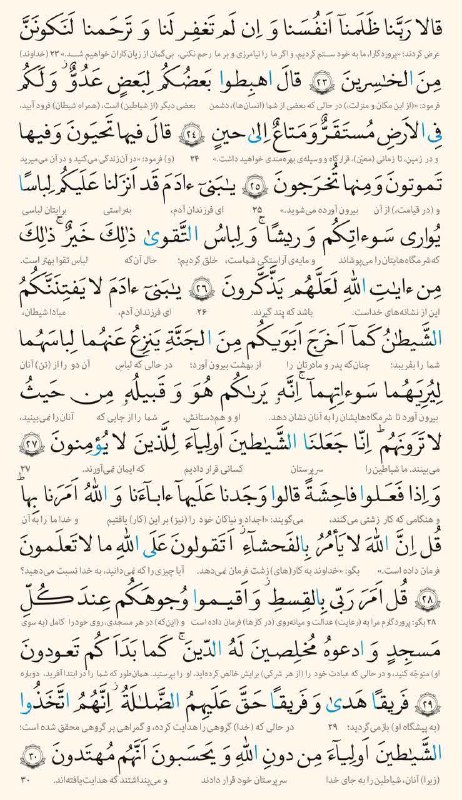 قالا رَبَّنا ظَلَمنآ اَنفُسَنا وَ اِن لَم تَغفِر لَنا وَ تَرحَمنا لَنَكونَنَّ
عرض کردند: «پروردگارا، ما به خود ستم کردیم، و اگر ما را نیامرزی و بر ما رحم نکنی، بی‌گمان از زیان‌کاران خواهیم شد.» ۲۳ (خداوند)
مِنَ الخاسِرینَ ﴿۲۳﴾ قالَ اهبِطوا بَعضُکُم لِبَعضٍ عَدُوٌّ وَ لَکُم
فرمود: «از این مکان و منزلت، در حالی که بعضی از شما (انسان‌ها)، دشمن بعضی دیگر (از شیاطین) است، (همراه شیطان) فرود آیید.
فِی الاَرضِ مُستَقَرٌّ وَ مَتاعٌ اِلیٰ حینٍ ﴿۲۴﴾ قالَ فیها تَحیَونَ وَ فیها
و در زمین، تا زمانی (معیّن)، قرارگاه و وسیله‌ی بهره‌مندی خواهید داشت.» ۲۴ (و) فرمود: «در آن زندگی می‌کنید و در آن می‌میرید
تَموتونَ وَ مِنها تُخرَجونَ ﴿۲۵﴾ یـٰبَنیٓ ءادَمَ قَد اَنزَلنا عَلَیکُم لِباسًا
و (در قیامت)، از آن بیرون آورده می‌شوید.» ۲۵ ای فرزندان آدم، به‌راستی برایتان لباسی
یُواری سَوءاتِکُم وَ ریشًا ۖ وَ لِباسُ التَّقویٰ ذٰلِکَ خَیرٌ ۚ ذٰلِکَ
که شرمگاه‌هایتان را می‌پوشاند و مایه‌ی آراستگی شماست، خلق کردیم؛ حال آن‌که لباس تقوا بهتر است.
مِن ءایـٰتِ اللهِ لَعَلَّهُم یَذَّکَّرونَ ﴿۲۶﴾ یـٰبَنیٓ ءادَمَ لا یَفتِنَنَّکُمُ
این از نشانه‌های خداست. باشد که پند گیرند. ۲۶ ای فرزندان آدم، مبادا شیطان،
الشَّیطـٰنُ کَمآ اَخرَجَ اَبَوَیکُم مِنَ الجَنَّةِ یَنزِعُ عَنهُما لِباسَهُما
شما را بفریبد؛ چنان‌که پدر و مادرتان را از بهشت بیرون آورد؛ در حالی که لباس آن دو را از (تن) آنان
لِیُرِیَهُما سَوءاتِهِمآ ۗ اِنَّهُ یَرىٰکُم هُوَ وَ قَبیلُهُ مِن حَیثُ
بیرون آورد تا شرمگاه‌هایشان را به آنان نشان دهد. او و هم‌دستانش، شما را از جایی که آنان را نمی‌بینید،
لا تَرَونَهُم ۗ اِنّا جَعَلنَا الشَّیـٰطینَ اَولِیآءَ لِلَّذینَ لا یُؤمِنونَ ﴿۲۷﴾
می‌بینند. ما شیاطین را سرپرستان کسانی قرار دادیم که ایمان نمی‌آورند. ۲۷
وَ اِذا فَعَلوا فاحِشَةً قالوا وَجَدنا عَلَیهآ ءابآءَنا وَ اللهُ اَمَرَنا بِها ۗ
و هنگامی که کار زشتی می‌کنند، می‌گویند: «اجداد و نیاکان خود را (نیز) بر این (کار) یافتیم و خدا ما را به آن
قُل اِنَّ اللهَ لا یَأمُرُ بِالفَحشآءِ ۖ اَتَقولونَ عَلَی اللهِ ما لا تَعلَمونَ
فرمان داده است.» بگو: «خداوند به کار(های) زشت فرمان نمی‌دهد. آیا چیزی را که نمی‌دانید، به خدا نسبت می‌دهید؟
﴿۲۸﴾ قُل اَمَرَ رَبّی بِالقِسطِ ۖ وَ اَقیموا وُجوهَکُم عِندَ کُلِّ
۲۸ بگو: پروردگارم مرا به (رعایت) عدالت و میانه‌روی (در کارها) فرمان داده است و (این‌که) در هر مسجدی، روی خود را کامل (به سوی
مَسجِدٍ وَ ادعوهُ مُخلِصینَ لَهُ الدّینَ ۚ کَما بَدَاَکُم تَعودونَ
او) متوجّه کنید، و در حالی که عبادت خود را (از هر شرکی) برایش خالص کرده‌اید، او را بپرستید. همان‌طور که شما را در ابتدا آفرید، دوباره
﴿۲۹﴾ فَریقًا هَدىٰ وَ فَریقًا حَقَّ عَلَیهِمُ الضَّلـٰلَةُ ۗ اِنَّهُمُ اتَّخَذُوا
(به پیشگاه او) بازمی‌گردید؛ ۲۹ در حالی که (خدا) گروهی را هدایت کرده، و گمراهی بر گروهی محقق شده است؛
الشَّیـٰطینَ اَولِیآءَ مِن دونِ اللهِ وَ یَحسَبونَ اَنَّهُم مُهتَدونَ ﴿۳۰﴾
(زیرا) آنان، شیاطین را به جای خدا سرپرستان خود قرار دادند و می‌پنداشتند که هدایت یافته‌اند. ۳۰